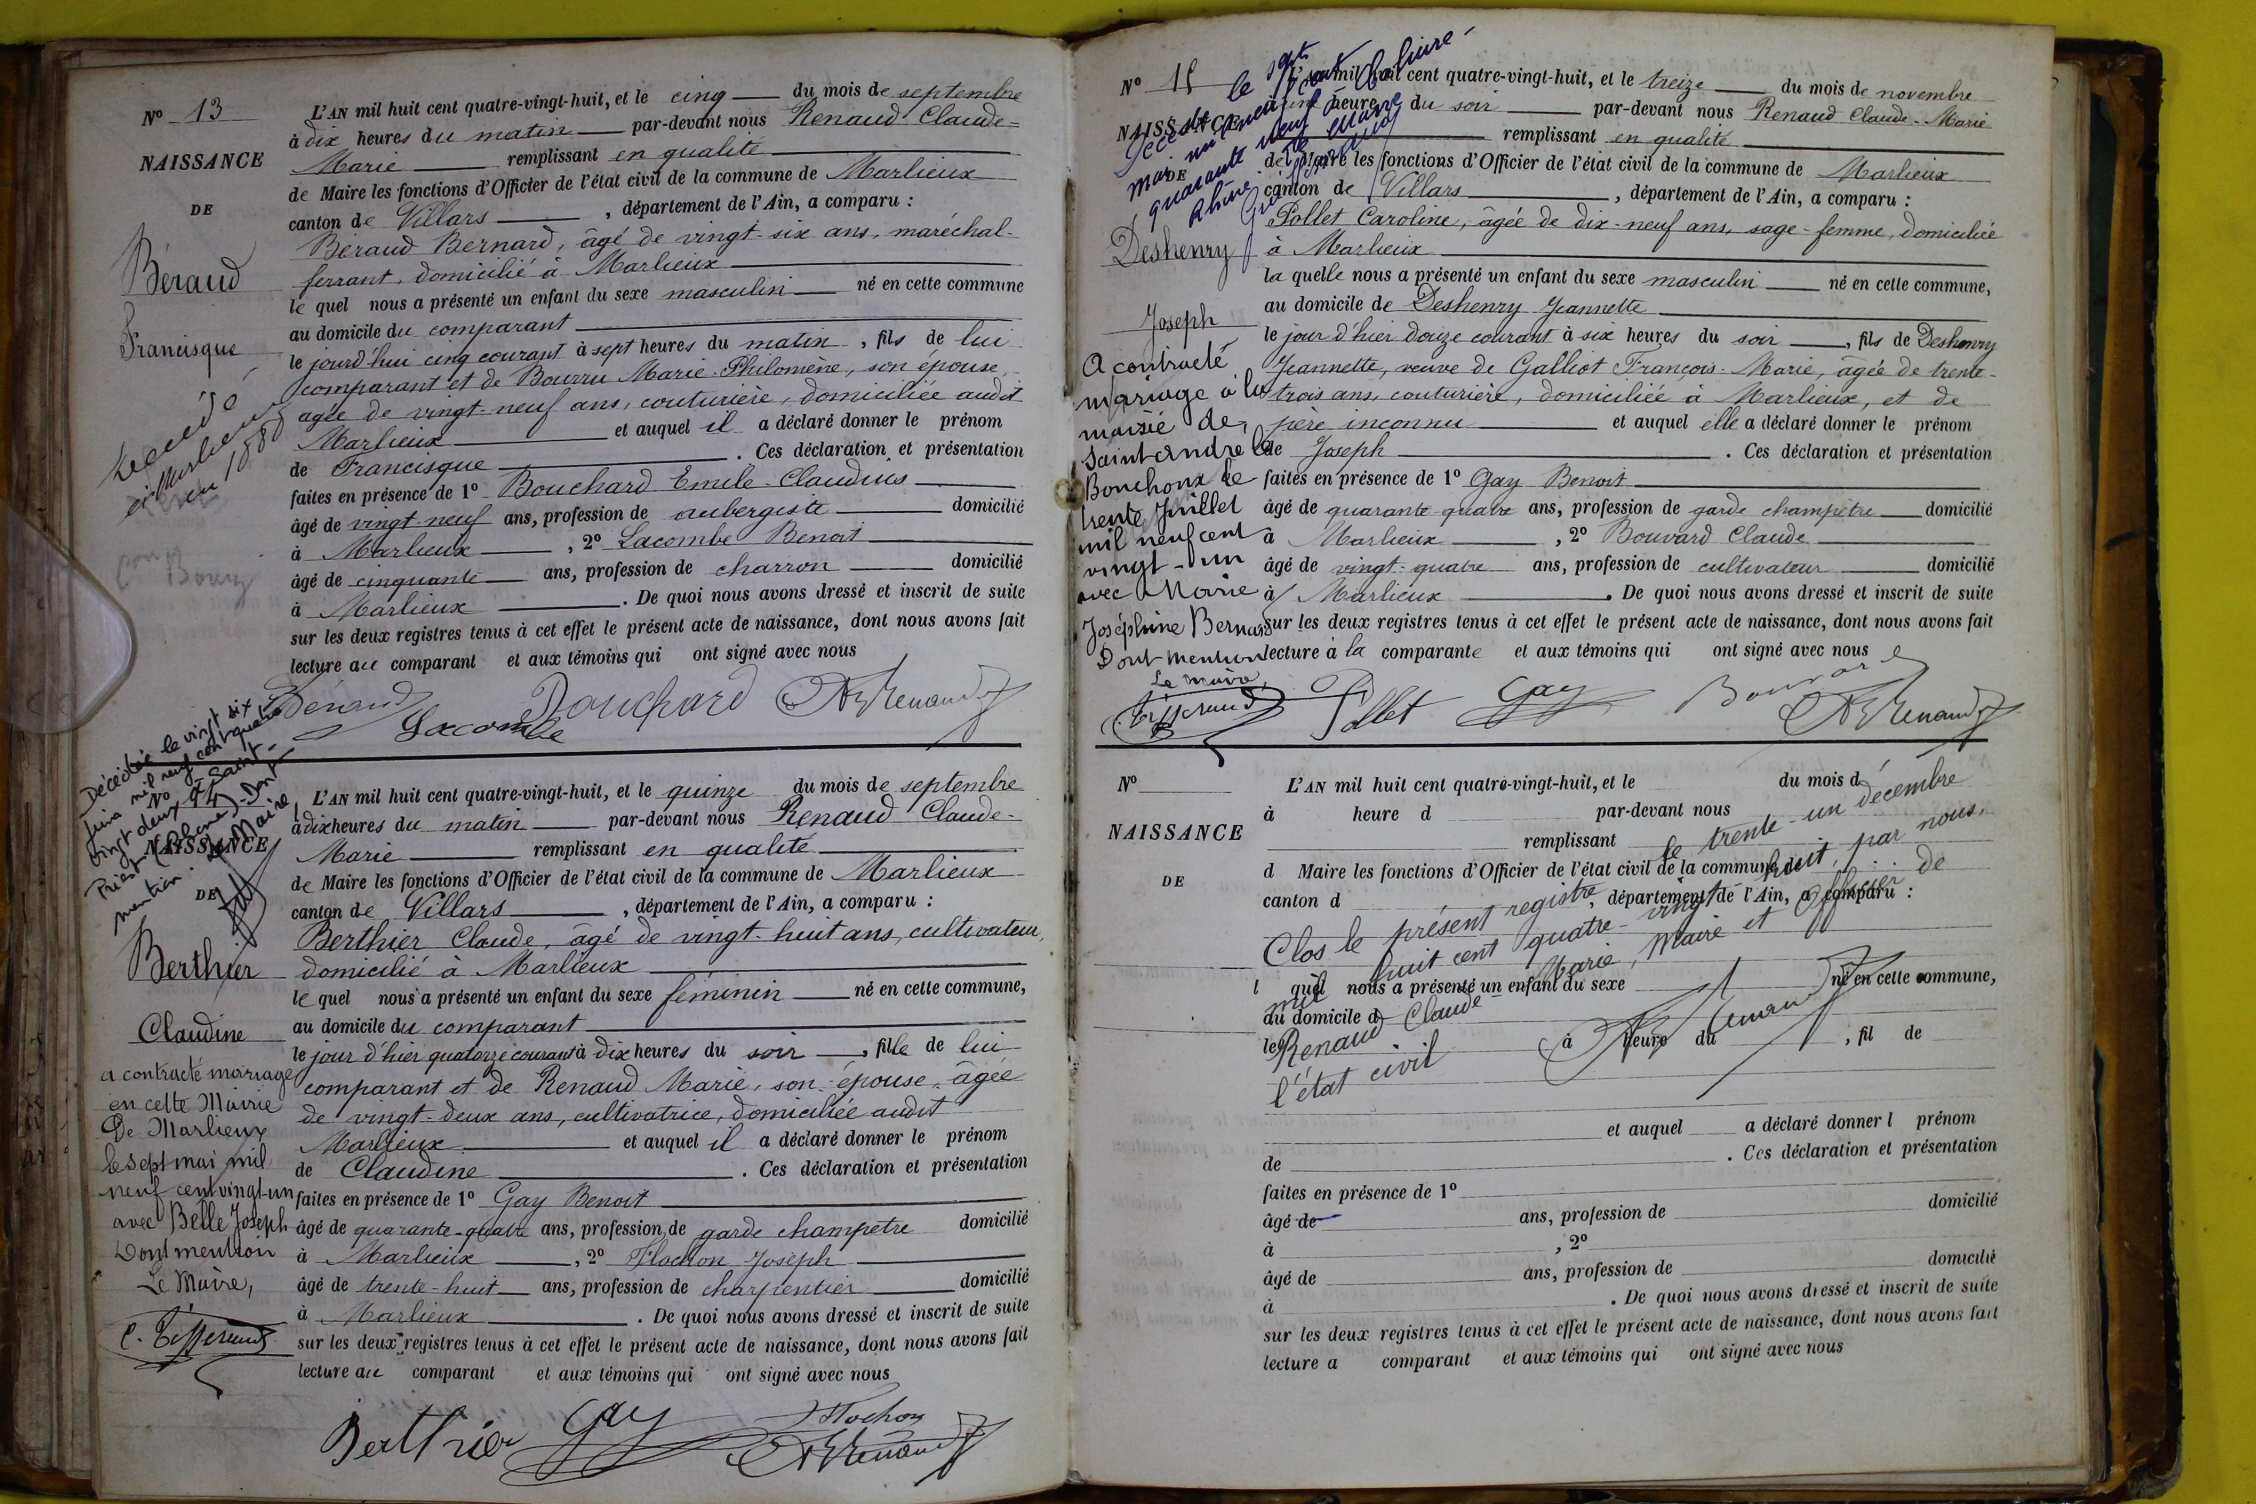 N° 13
NAISSANCE
DE
Béraud
Francisque
Décédé
à Marlieux
en 1888
L'AN mil huit cent quatre-vingt-huit, et le cinq du mois de septembre
à dix heures du matin par-devant nous Renaud Claude-
Marie remplissant en qualité
de Maire les fonctions d'Officier de l'état civil de la commune de Marlieux
canton de Villars, département de l'Ain, a comparu :
Beraud Bernard, âgé de vingt-six ans, maréchal-
ferrant, domicilié à Marlieux
le quel nous a présenté un enfant du sexe masculin né en cette commune
au domicile du comparant
le jourd'hui cinq courant à sept heures du matin, fils de lui
comparant et de Bourru Marie-Philomène, son épouse,
agée de vingt-neuf ans, couturière, domiciliée audit
Marlieux et auquel il a déclaré donner le prénom
de Francisque. Ces déclaration et présentation
faites en présence de 1° Bouchard Emile-Claudius
âgé de vingt-neuf ans, profession de aubergiste domicilié
à Marlieux, 2° Lacombe Benoit
âgé de cinquante ans, profession de charron domicilié
à Marlieux. De quoi nous avons dressé et inscrit de suite
sur les deux registres tenus à cet effet le présent acte de naissance, dont nous avons fait
lecture au comparant et aux témoins qui ont signé avec nous
Béraud Bouchard Renaud
Lacombe
Décédée le vingt six
juin mil neuf cent quatre
vingt deux à Saint-
Priest (Rhône) - Dont
mention. Le Maire,
N° 14
NAISSANCE
DE
Berthier
Claudine
a contracté mariage
en cette Mairie
De Marlieux
le sept mai mil
neuf cent vingt-un
avec Belle Joseph
Dont mention
Le Maire,
L'AN mil huit cent quatre-vingt-huit, et le quinze du mois de septembre
à dix heures du matin par-devant nous Renaud Claude-
Marie remplissant en qualité
de Maire les fonctions d'Officier de l'état civil de la commune de Marlieux
canton de Villars, département de l'Ain, a comparu :
Berthier Claude, âgé de vingt-huit ans, cultivateur,
domicilié à Marlieux
le quel nous a présenté un enfant du sexe féminin né en cette commune,
au domicile du comparant
le jour d'hier quatorze courant à dix heures du soir, fille de lui
comparant et de Renaud Marie, son épouse, âgée
de vingt-deux ans, cultivatrice, domiciliée audit
Marlieux et auquel il a déclaré donner le prénom
de Claudine. Ces déclaration et présentation
faites en présence de 1° Gay Benoit
âgé de quarante-quatre ans, profession de garde champêtre domicilié
à Marlieux, 2° Flochon Joseph
âgé de trente-huit ans, profession de charpentier domicilié
à Marlieux. De quoi nous avons dressé et inscrit de suite
sur les deux registres tenus à cet effet le présent acte de naissance, dont nous avons fait
lecture au comparant et aux témoins qui ont signé avec nous
Berthier Gay Flochon
Renaud
N° 15
NAISSANCE
DE
Décédé le sept
mai
quarante neuf à
Rhône
le Maire
Deshenry
Joseph
A contracté
mariage à la
mairie de
Saint André le
Bouchoux le
trente Juillet
mil neuf cent
vingt-un
avec Marie
Joséphine Bernard
Dont mention
Le Maire,
L'AN mil huit cent quatre-vingt-huit, et le treize du mois de novembre
heure du soir par-devant nous Renaud Claude-Marie
remplissant en qualité
de Maire les fonctions d'Officier de l'état civil de la commune de Marlieux
canton de Villars, département de l'Ain, a comparu :
Pollet Caroline, âgée de dix-neuf ans, sage-femme, domiciliée
à Marlieux
la quelle nous a présenté un enfant du sexe masculin né en cette commune,
au domicile de Deshenry Jeannette
le jour d'hier douze courant à six heures du soir, fils de Deshenry
Jeannette, veuve de Galliot François-Marie, âgée de trente-
trois ans, couturière, domiciliée à Marlieux, et de
père inconnu et auquel elle a déclaré donner le prénom
de Joseph. Ces déclaration et présentation
faites en présence de 1° Gay Benoit
âgé de quarante-quatre ans, profession de garde champêtre domicilié
à Marlieux, 2° Bouvard Claude
âgé de vingt-quatre ans, profession de cultivateur domicilié
à Marlieux. De quoi nous avons dressé et inscrit de suite
sur les deux registres tenus à cet effet le présent acte de naissance, dont nous avons fait
lecture à la comparante et aux témoins qui ont signé avec nous
Pollet Gay Bouvard
Renaud
N°
NAISSANCE
DE
L'AN mil huit cent quatre-vingt-huit, et le du mois d
à heure d par-devant nous
remplissant
d Maire les fonctions d'Officier de l'état civil de la commune de
canton d, département de l'Ain, a comparu :
Clos le présent registre, le trente-un décembre
mil huit cent quatre-vingt-huit, par nous,
Renaud Claude-Marie, Maire et Officier de
l'état civil
Renaud
l quel nous a présenté un enfant du sexe né en cette commune,
au domicile d
le à heure du, fil de
et auquel a déclaré donner l prénom
de. Ces déclaration et présentation
faites en présence de 1°
âgé de ans, profession de domicilié
à, 2°
âgé de ans, profession de domicilié
à. De quoi nous avons dressé et inscrit de suite
sur les deux registres tenus à cet effet le présent acte de naissance, dont nous avons fait
lecture a comparant et aux témoins qui ont signé avec nous